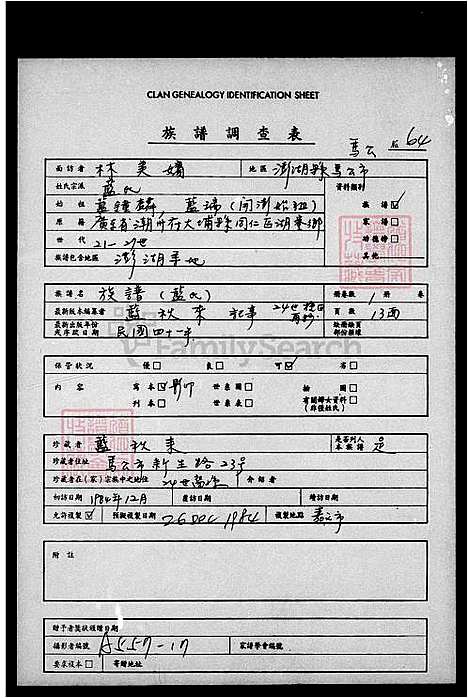 CLAN GENEALOGY IDENTIFICATION SHEET
族譜調查表
馬公 64
面訪者 林美嬪 地區 澎湖縣馬公市
姓氏宗派 藍氏 資料類別
始祖 藍鐘麟, 藍瑞(開澎始祖) 族譜☑
原籍 廣東省潮州府大埔縣同仁區湖寮鄉 家譜□
世代 21-27世 功德榜□
族譜包含地區 澎湖本地 其他
族譜名 族譜(藍氏) 冊卷數 1 冊 卷
最新版本編纂者 藍秋來 記事 頁數 13面
最新出版年份或序跋日期 民國四十一年
FamilySearch
保管狀況 優□ 良□ 可☑ 劣□
內容 寫本☑影印 世系圖□ 繪圖□
刊本□ 世系表□ 有關婦女資料□
珍藏者 藍秋來 是否列入本族譜 是
珍藏者住址 馬公市新生路23号
珍藏者在(家)宗族中之地位 24世 介紹者
初訪日期 1984年12月 覆訪日期 續訪日期
允許複製☑ 預擬複製日期 26 DEC 1984 複製地點
附註
贈予者獎狀頒贈日期
攝影者編號 A557-17 家譜學會編號
要求複本□ 寄贈地址